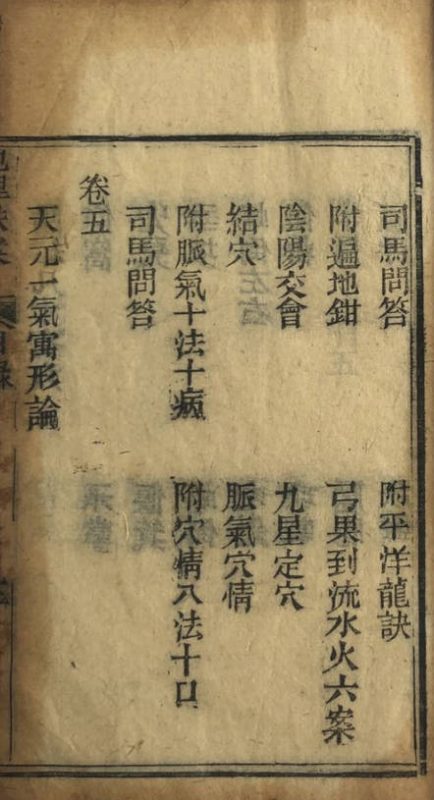 司馬問答　附平洋龍訣
附遍地鉗　弓果到流水火六案
陰陽交會　九星定穴
結穴　脈氣穴情
附脈氣十法十病　附穴情八法十口
司馬問答
卷五
天元一氣寓形論
目錄